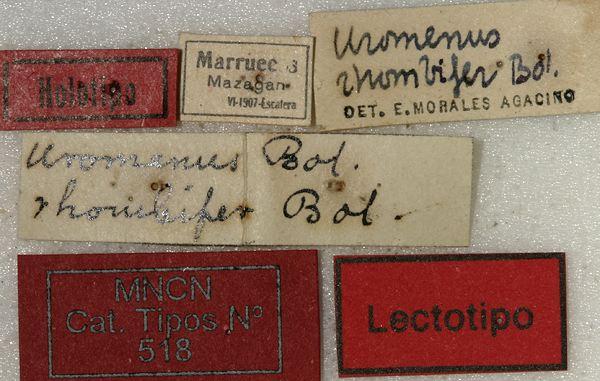 Holotipo
Marruecos
Mazagan
VI-1907-Escalera
Uromenus
rhombifer Bol.
DET. E. MORALES AGACINO
Uromenus Bol.
rhombifer Bol.
MNCN
Cat. Tipos Nº
518
Lectotipo